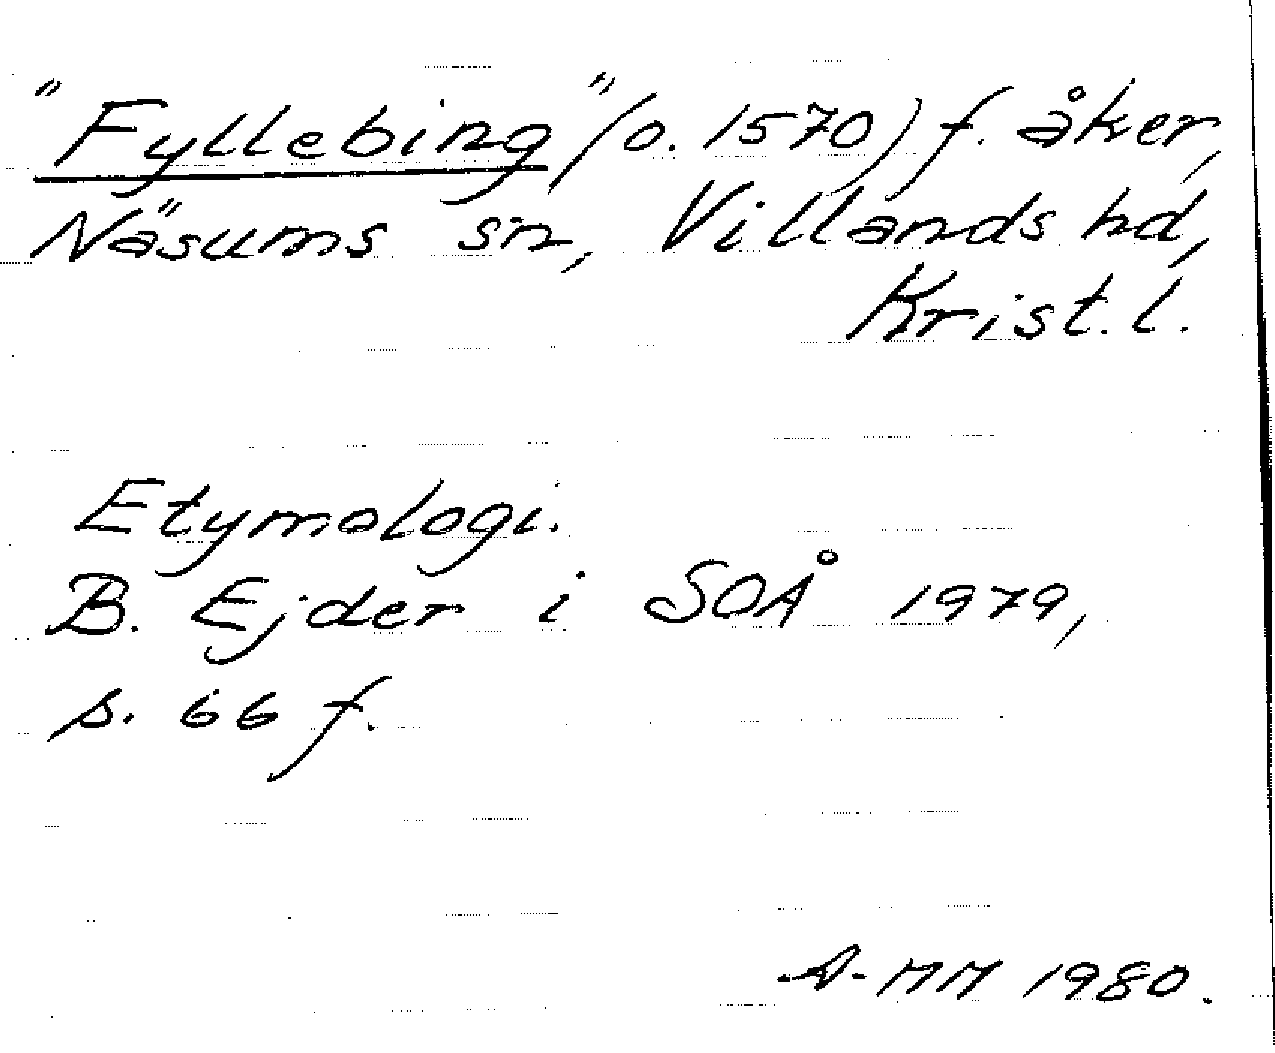 "Fyllebing" (o. 1570) f. åker,
Näsums sn, Villands hd,
Krist. l.
Etymologi.
B. Ejder i SOÅ 1979,
s. 66 f.
A-MM 1980.